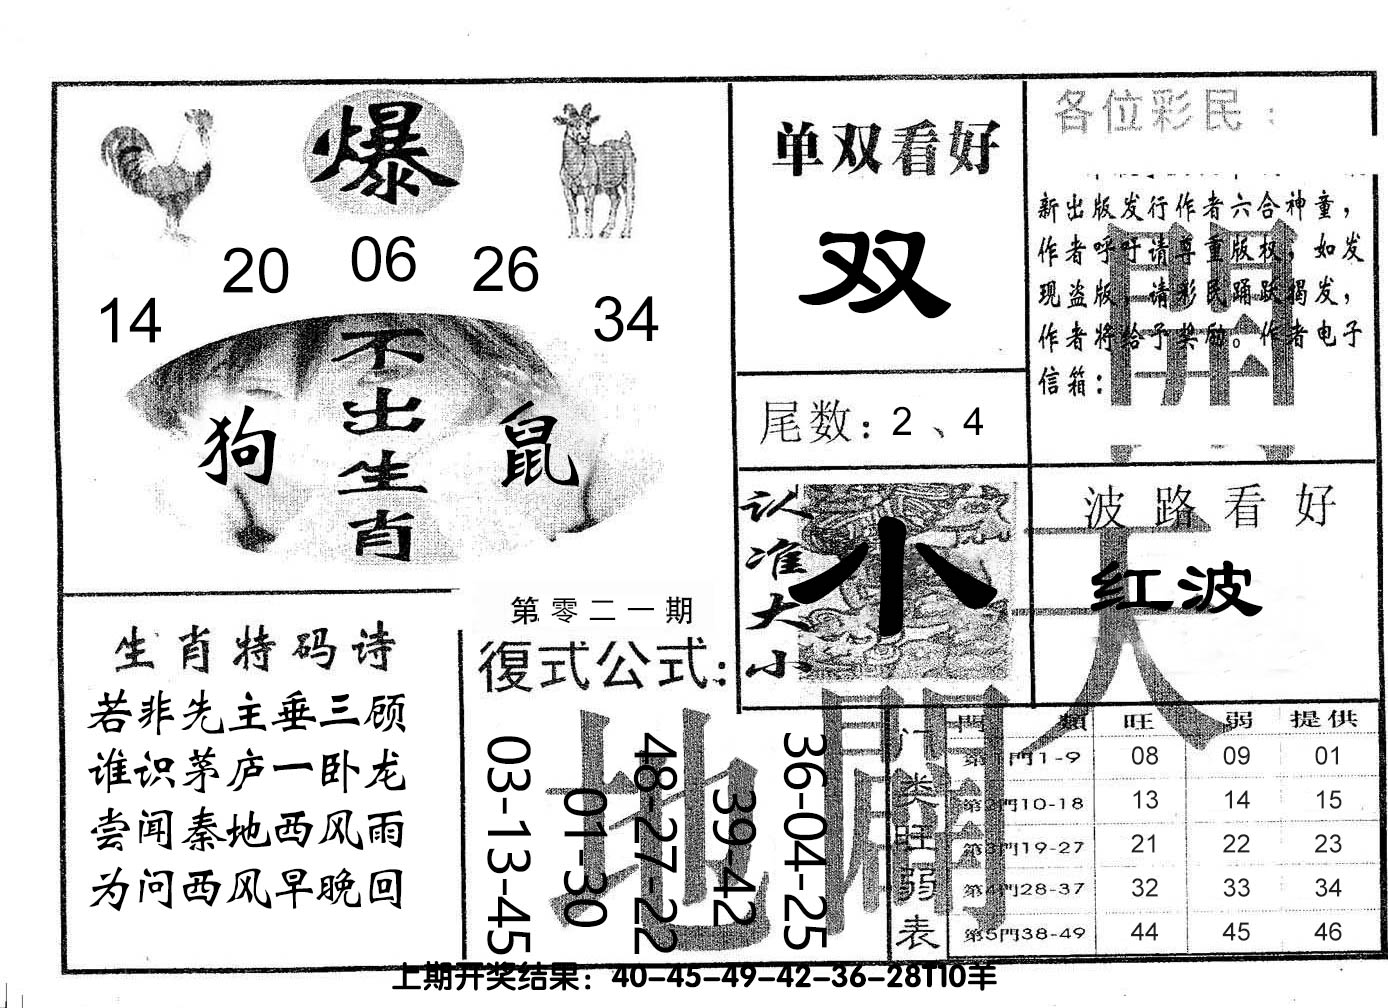 爆
20 06 26
14 34
不出生肖
狗 鼠
生肖特码诗
若非先主垂三顾
谁识茅庐一卧龙
尝闻秦地西风雨
为问西风早晚回
第零二一期
復式公式:
03-13-45
01-30
48-27-22
39-42
36-04-25
单双看好
双
尾数: 2、4
认准大小
小
各位彩民:
新出版发行作者六合神童，
作者呼吁请尊重版权，如发
现盗版，请彩民踊跃揭发，
作者将给予奖励。作者电子
信箱:
波路看好
红波
天
地
開
門類 旺 弱 提供
门类旺弱表
第1門1-9 08 09 01
第2門10-18 13 14 15
第3門19-27 21 22 23
第4門28-37 32 33 34
第5門38-49 44 45 46
上期开奖结果：40-45-49-42-36-28T10羊